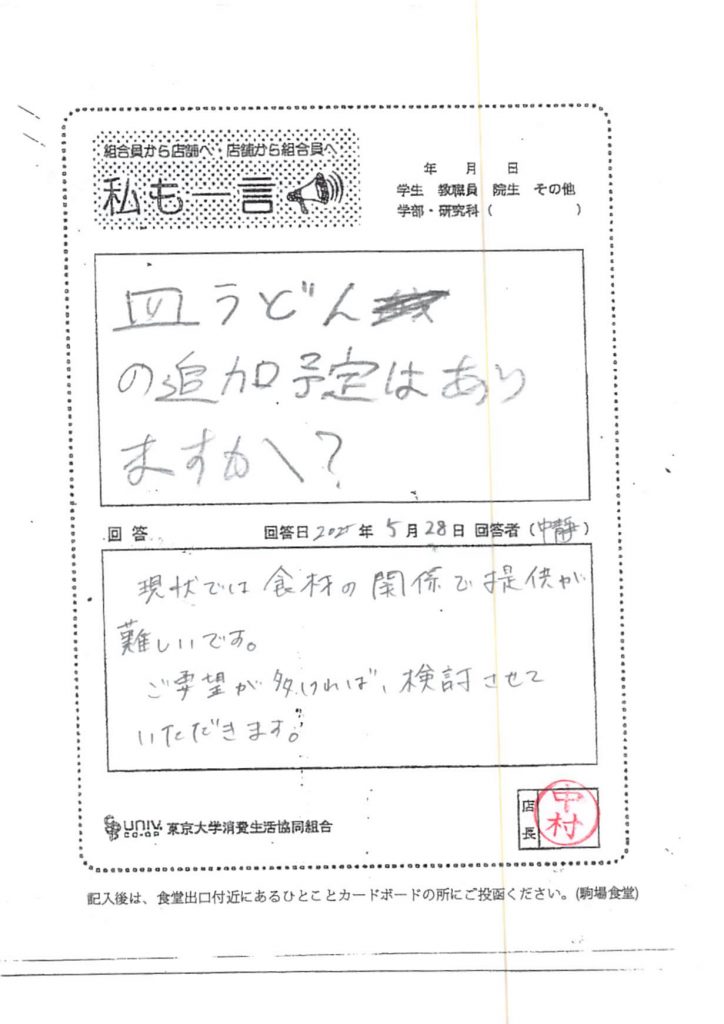 組合員から店舗へ・店舗から組合員へ
私も一言
年 月 日
学生 教職員 院生 その他
学部・研究科( )
皿うどん
の追加予定はあり
ますか?
回答 回答日2025年 5月28日 回答者(中静)
現状では食材の関係で提供が
難しいです。
ご要望が多ければ、検討させて
いただきます。
UNIV. CO-OP 東京大学消費生活協同組合
店長
中村
記入後は、食堂出口付近にあるひとことカードボードの所にご投函ください。(駒場食堂)